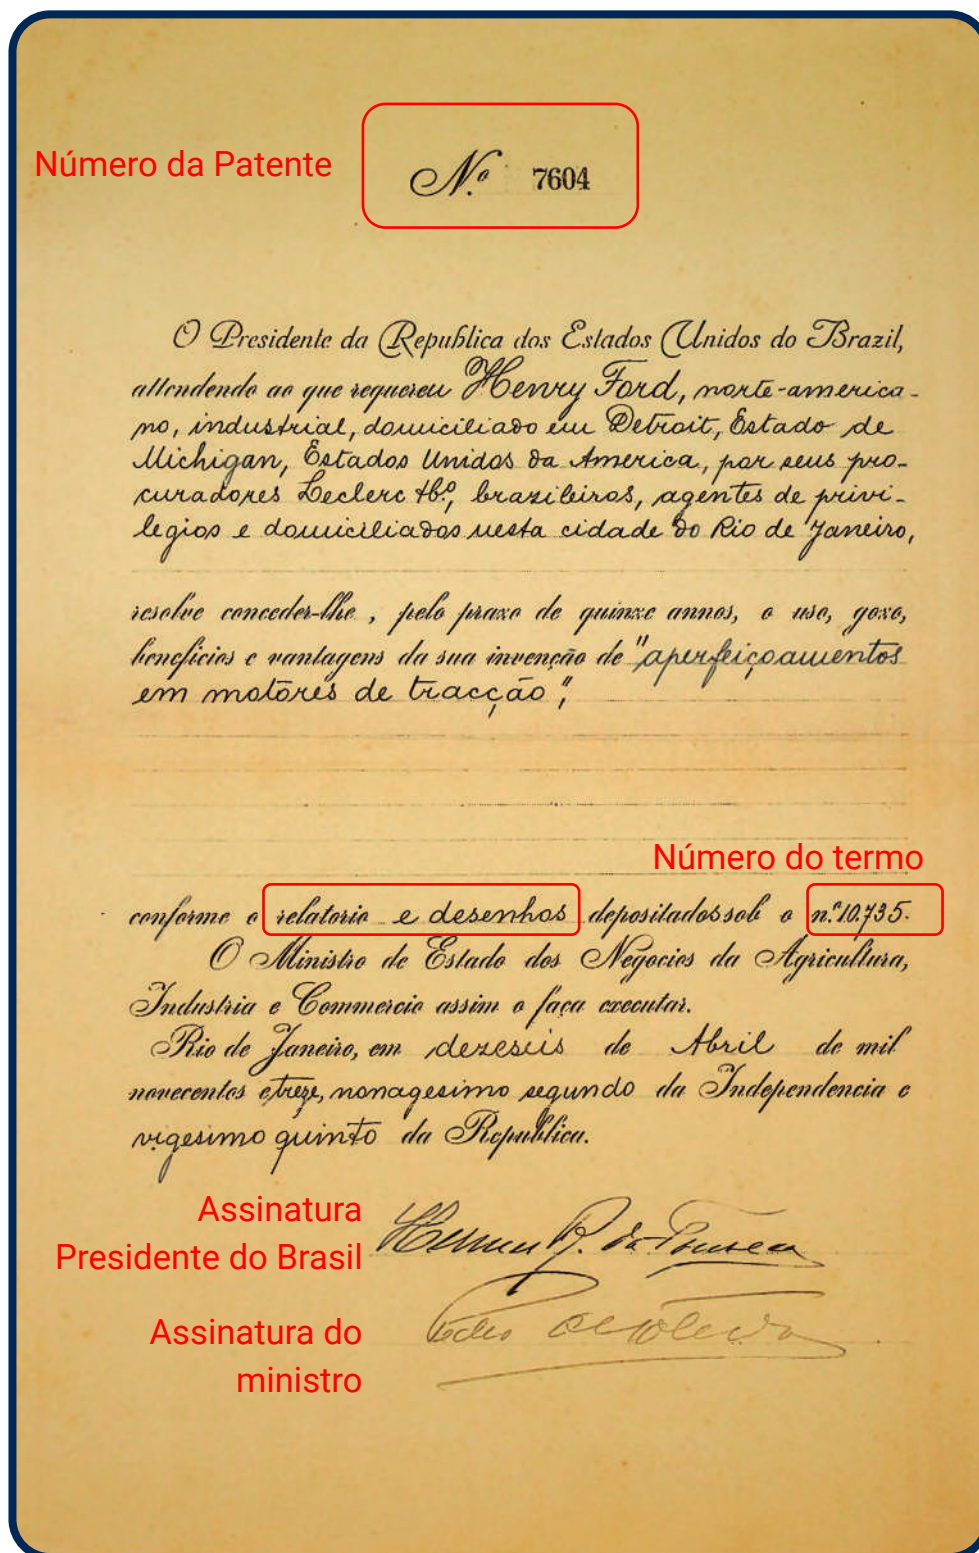 Número da Patente
Nº 7604
O Presidente da Republica dos Estados Unidos do Brazil,
attendendo ao que requereu Henry Ford, norte-america-
no, industrial, domiciliado em Detroit, Estado de
Michigan, Estados Unidos da America, por seus pro-
curadores Leclerc & Cº, brazileiros, agentes de privi-
legios e domiciliados nesta cidade do Rio de Janeiro,
resolve conceder-lhe, pelo praxo de quinxe annos, o uso, goxo,
beneficios e vantagens da sua invenção de "aperfeiçoamentos
em motôres de tracção",
Número do termo
conforme o relatorio e desenhos depositados sob o n.º 10.735.
O Ministro de Estado dos Negocios da Agricultura,
Industria e Commercio assim o faça executar.
Rio de Janeiro, em dezeseis de Abril de mil
novecentos e treze, nonagesimo segundo da Independencia e
vigesimo quinto da Republica.
Assinatura
Presidente do Brasil
Hermes R. da Fonseca
Assinatura do
ministro
Pedro de Toledo